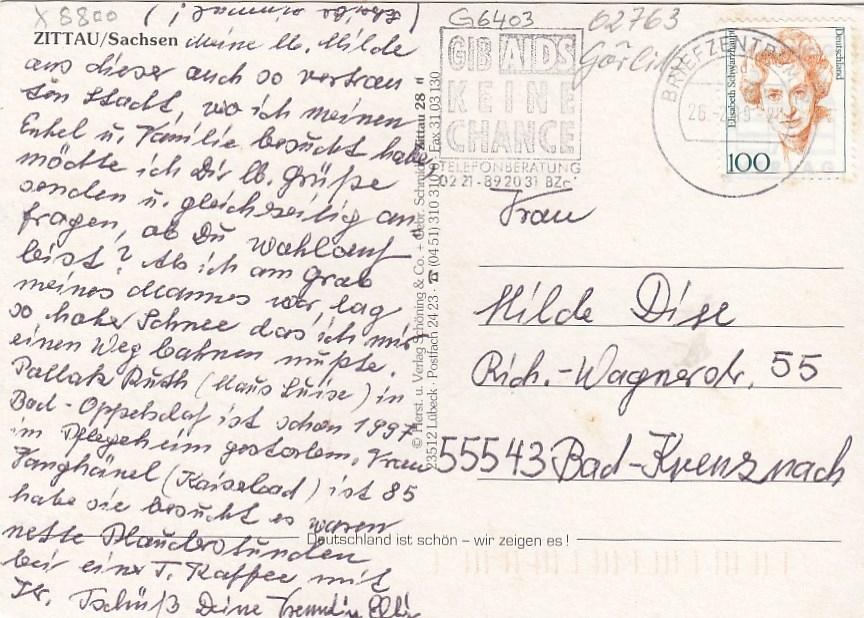 X 8800
G6403
02763
Görlitz
ZITTAU/Sachsen Meine lb. Hilde
aus dieser auch so vertrau
ten Stadt, wo ich meinen
Enkel u. Familie besucht habe,
möchte ich Dir lb. Grüße
senden u. gleichzeitig an
fragen, ob Du wohlauf
bist? Als ich am Grab
meines Mannes war, lag
so hoher Schnee das ich mir
einen Weg bahnen mußte.
Pallak Ruth (Haus Luise) in
Bad-Oppelsdorf ist schon 1997
im Pflegeheim gestorben. Frau
Hanghänel (Kaiserbad) ist 85
habe sie besucht es waren
nette Plauderstunden
bei einer T. Kaffee mit
Tschüß Deine Freundin
© Herst. u. Verlag Schöning & Co. + Gebr. Schmidt
23512 Lübeck · Postfach 24 23 · ☎ (04 51) 310 31 0 · Fax 31 03 130
Zittau 28 "
GIB AIDS
KEINE
CHANCE
TELEFONBERATUNG
02 21 - 89 20 31 BZgA
BRIEFZENTRUM
Elisabeth Schwarzhaupt
Deutschland
100
Frau
Hilde Dise
Rich.-Wagnerstr. 55
55543 Bad-Kreuznach
Deutschland ist schön – wir zeigen es !